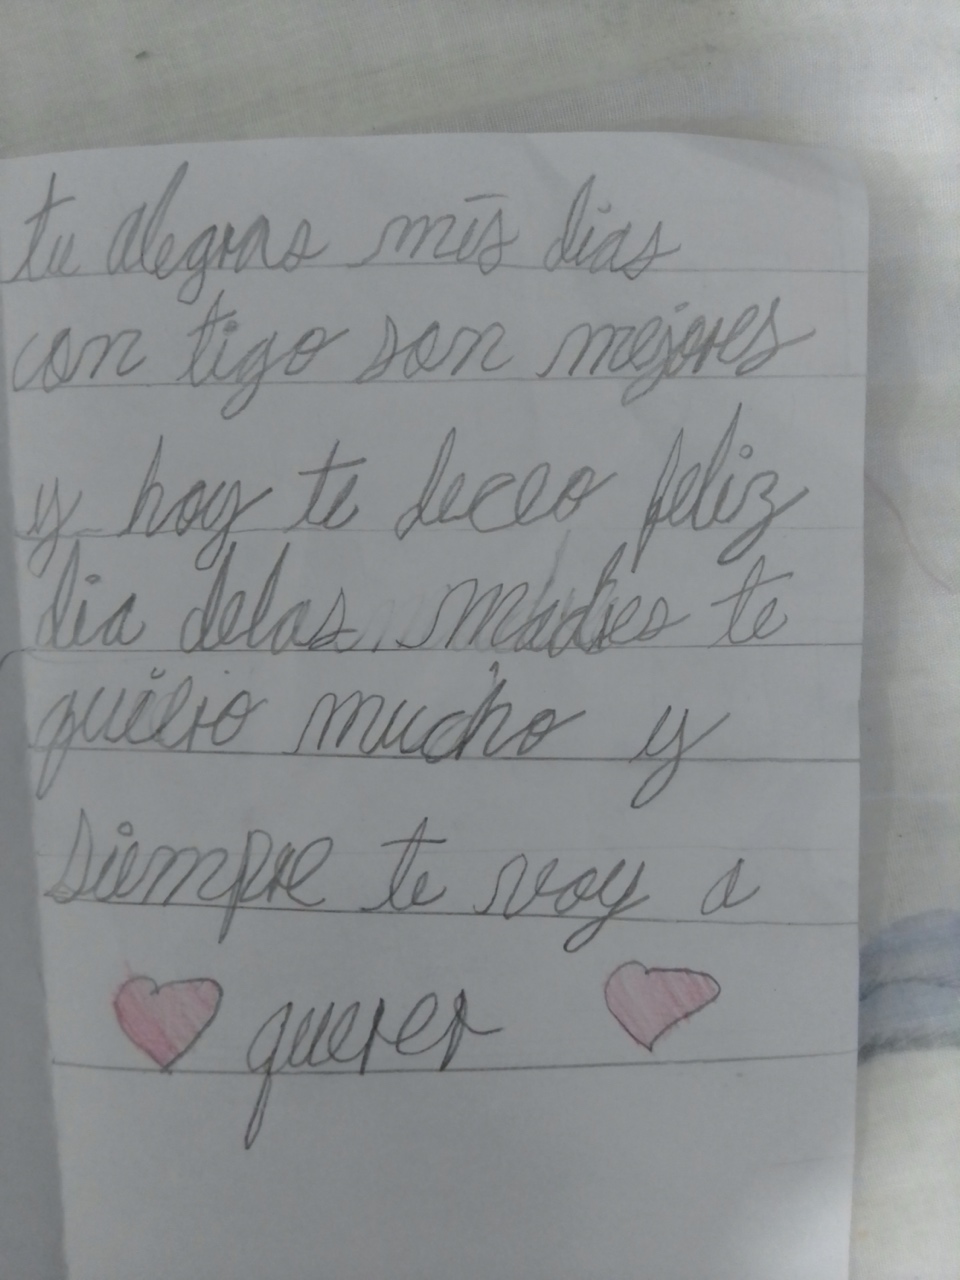 tu alegras mis dias
con tigo son mejores
y hoy te deceo feliz
dia delas madres te
quiero mucho y
siempre te voy a
querer